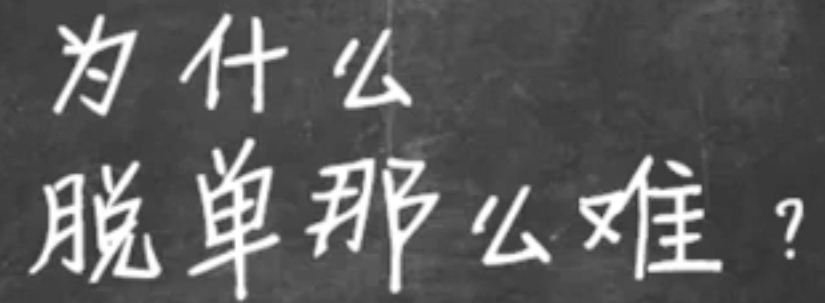 为什么
脱单那么难？